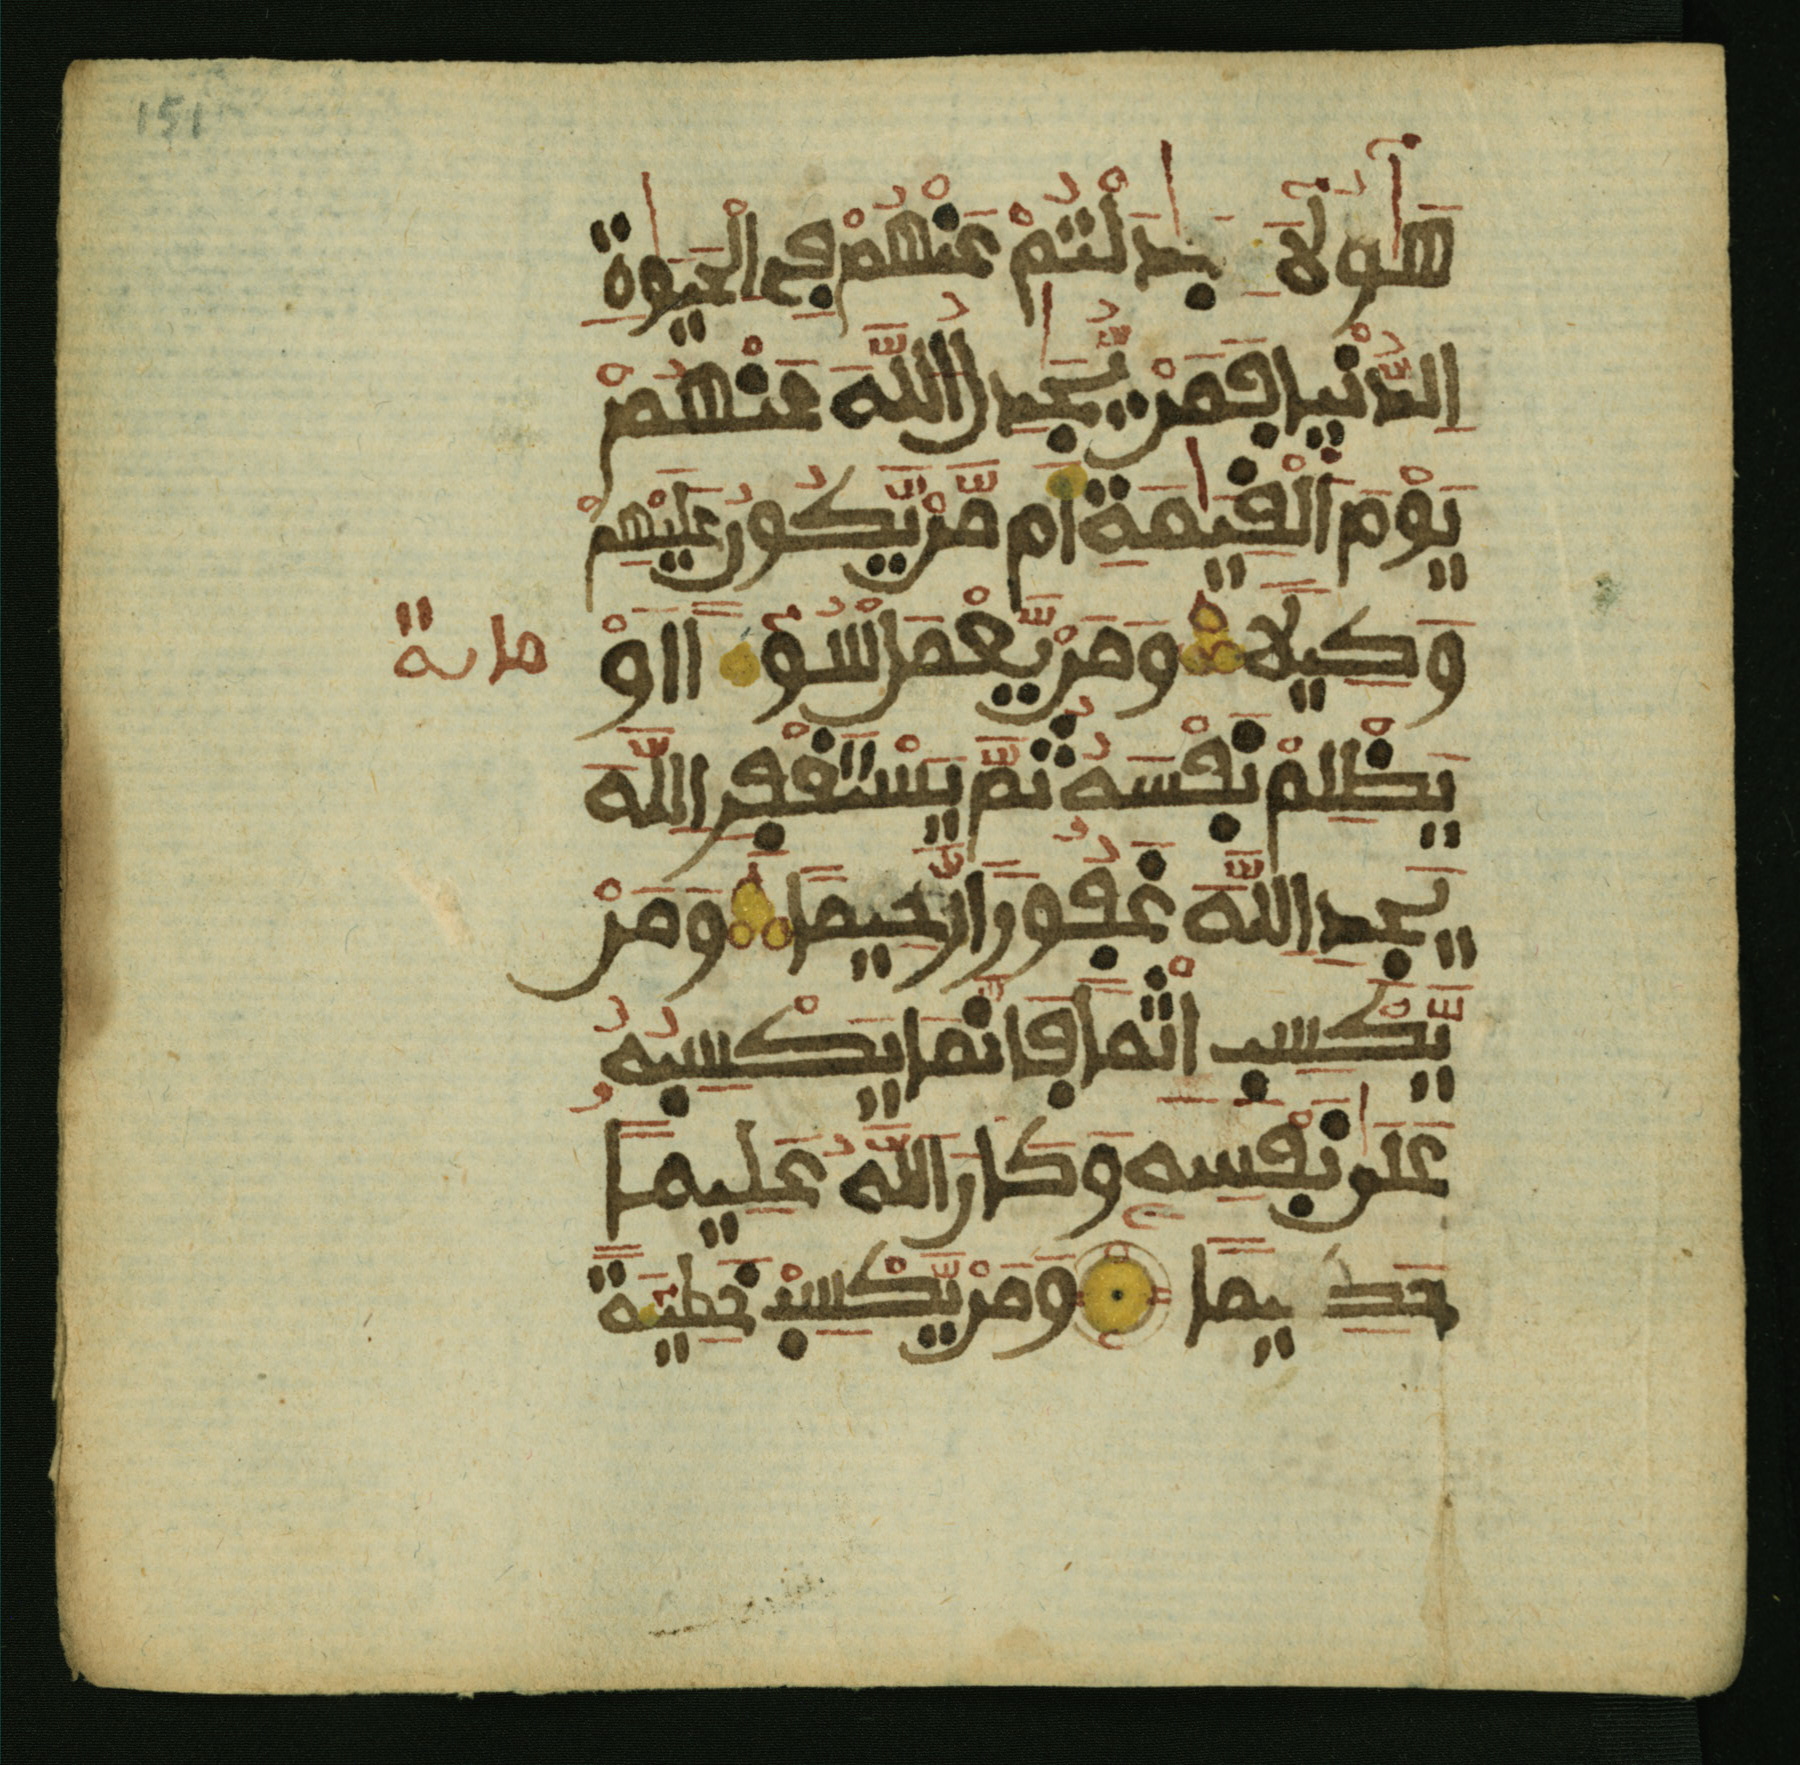 151
هَٰٓؤُلَآ جَٰدَلْتُمْ عَنْهُمْ فِي الْحَيَوٰةِ
الدُّنْيَا فَمَنْ يُّجَٰدِلُ اللَّهَ عَنْهُمْ
يَوْمَ الْقِيَٰمَةِ أَم مَّنْ يَّكُونُ عَلَيْهِمْ
وَكِيلًا وَمَنْ يَّعْمَلْ سُوءًا اَوْ
يَظْلِمْ نَفْسَهُ ثُمَّ يَسْتَغْفِرِ اللَّهَ
يَجِدِ اللَّهَ غَفُورًا رَّحِيمًا وَمَنْ
يَّكْسِبِ اثْمًا فَإِنَّمَا يَكْسِبُهُ
عَلَىٰ نَفْسِهِ وَكَانَ اللَّهُ عَلِيمًا
حَكِيمًا وَمَنْ يَّكْسِبْ خَطِيئَةً